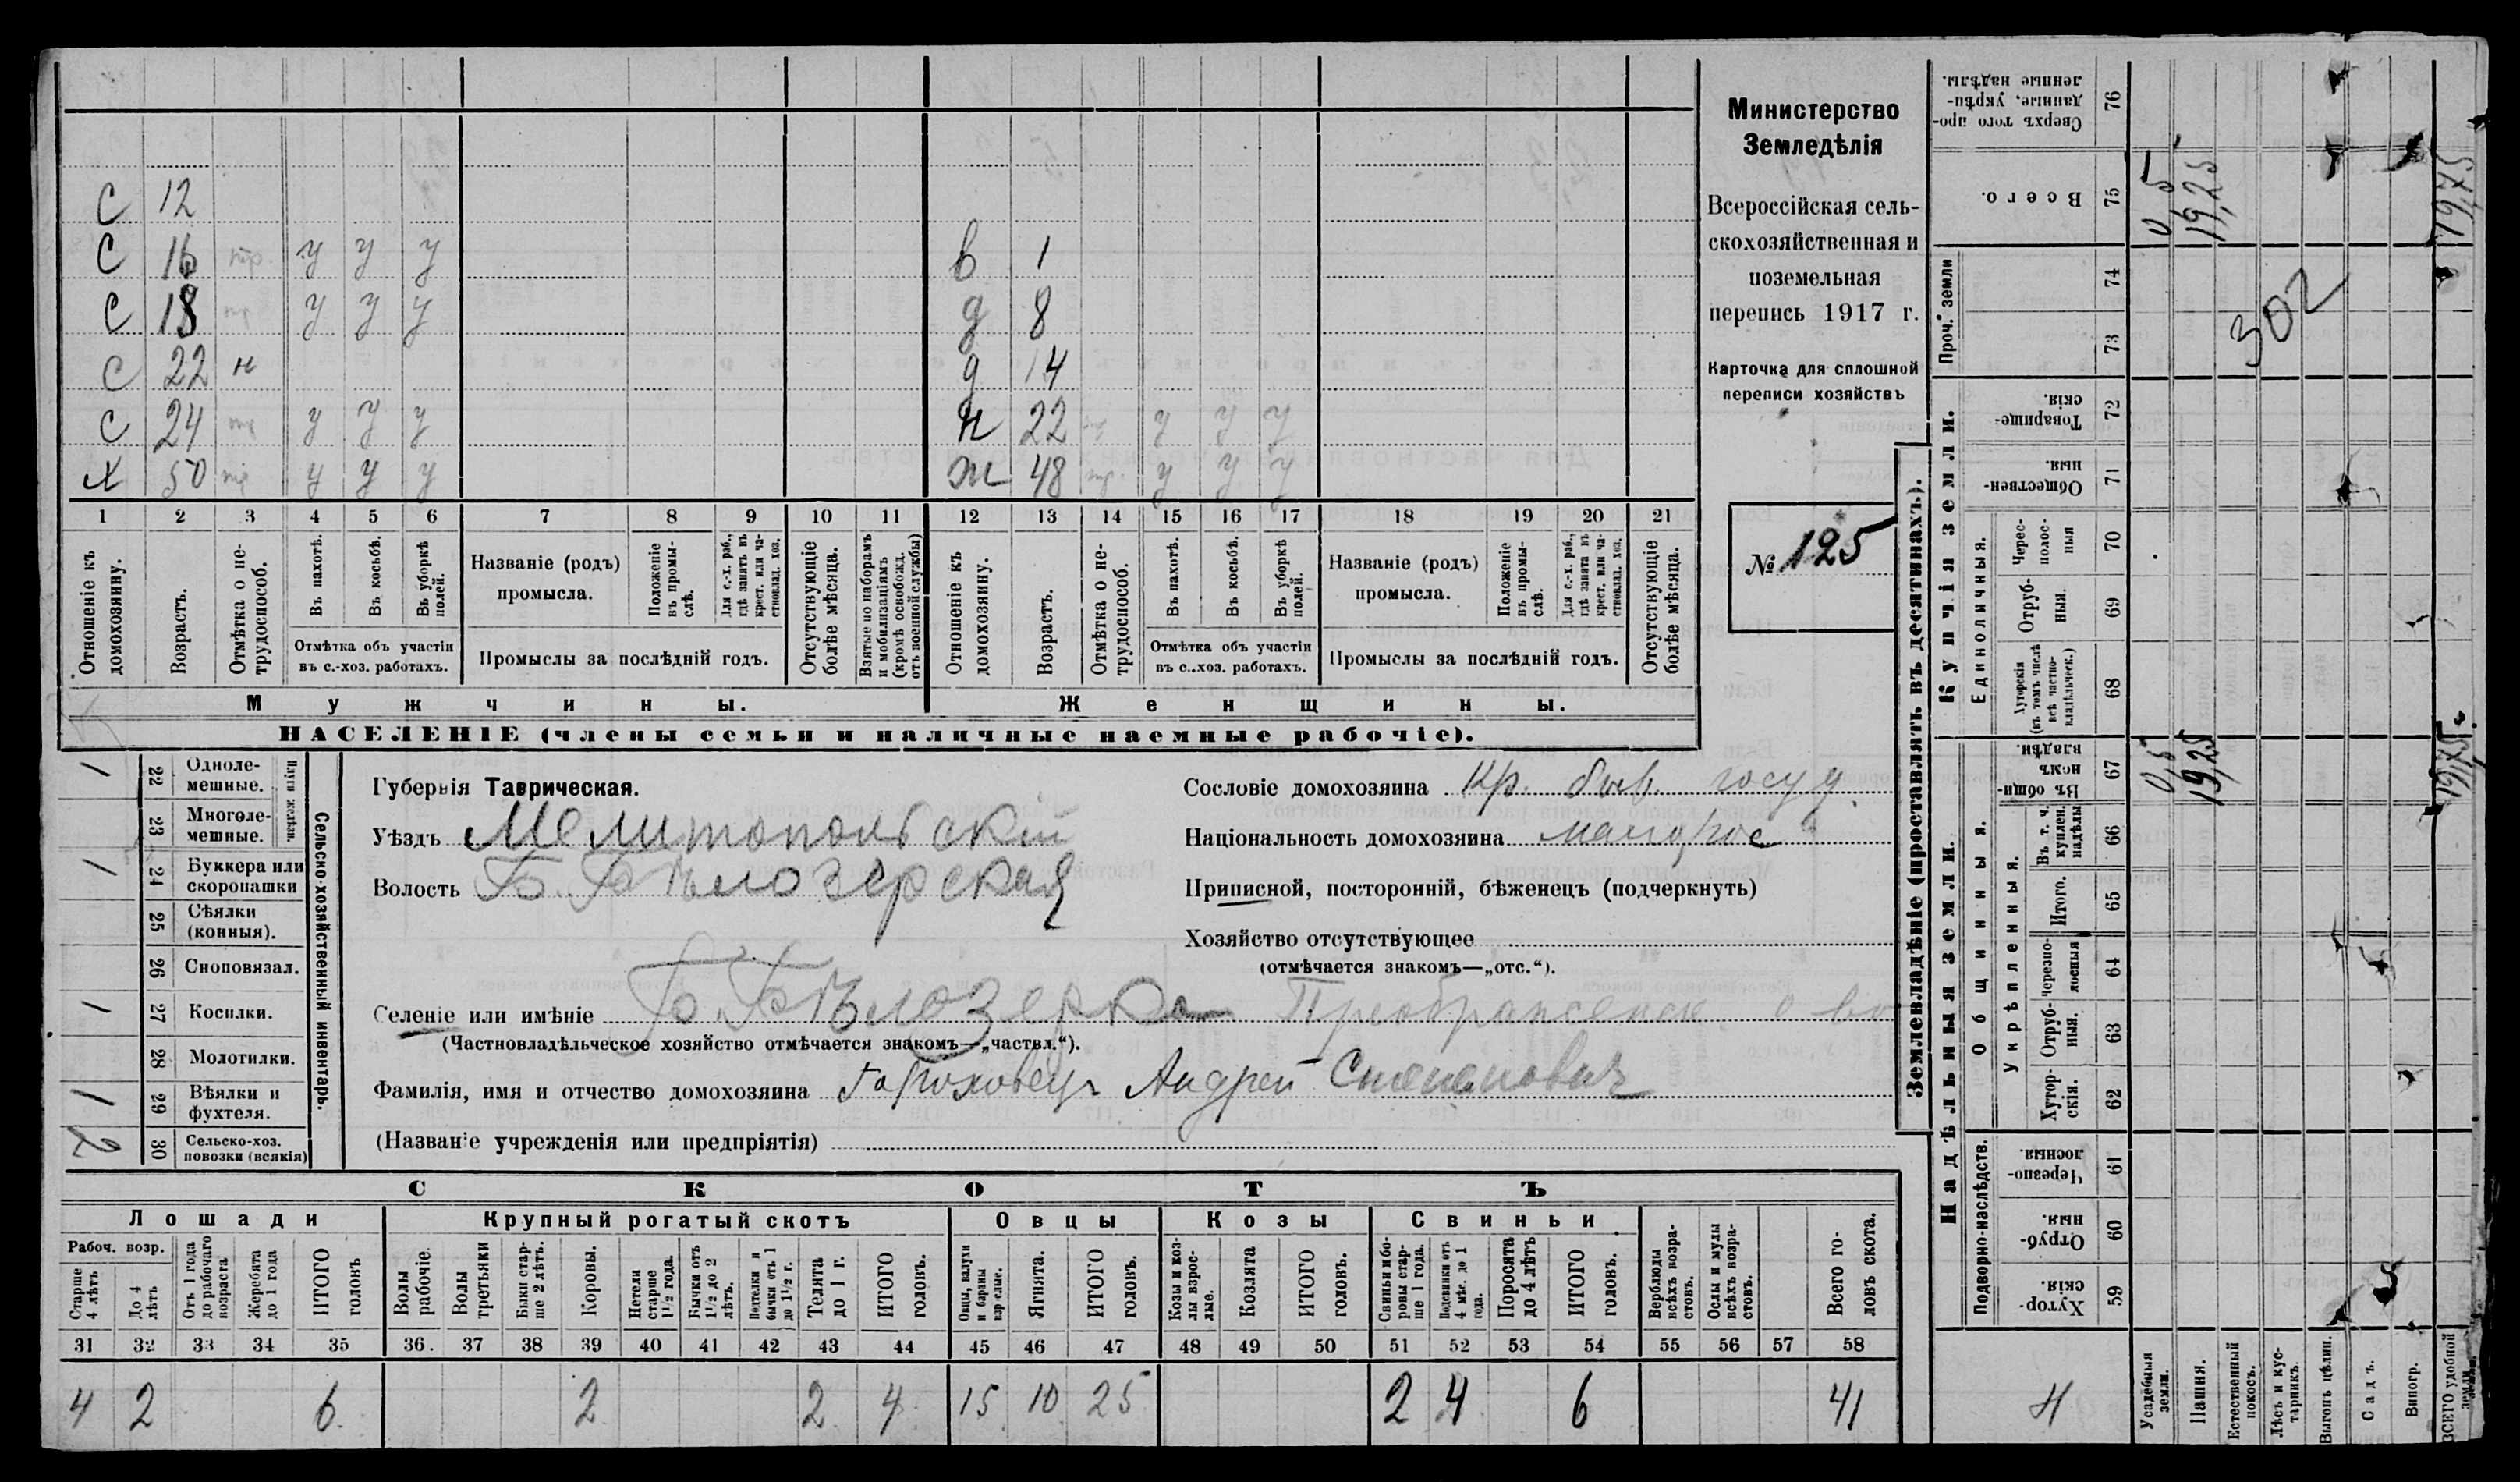 С 12
С 16 тр. у у у
в 1
С 18 тр у у у
д 8
С 22 н
д 14
С 24 тр у у у
н 22 тр у у у
Х 50 тр у у у
ж 48 тр. у у у
1 2 3 4 5 6 7 8 9 10 11 12 13 14 15 16 17 18 19 20 21
Отношеніе къ домохозяину.
Возрастъ.
Отмѣтка о не-трудоспособ.
Въ пахотѣ.
Въ косьбѣ.
Въ уборкѣ полей.
Отмѣтка объ участіи
въ с.-хоз. работахъ.
Названіе (родъ)
промысла.
Положеніе въ промы-слѣ.
Для с.-х. раб., гдѣ занятъ въ крест. или ча-стновлад. хоз.
Промыслы за послѣдній годъ.
Отсутствующіе болѣе мѣсяца.
Взятые по наборамъ и мобилизаціямъ (кромѣ освобожд. отъ военной службы)
Отношеніе къ домохозяину.
Возрастъ.
Отмѣтка о не-трудоспособ.
Въ пахотѣ.
Въ косьбѣ.
Въ уборкѣ полей.
Отмѣтка объ участіи
въ с..хоз. работахъ.
Названіе (родъ)
промысла.
Положеніе въ промы-слѣ.
Для с.-х. раб., гдѣ занята въ крест. или ча-стновлад. хоз.
Промыслы за послѣдній годъ.
Отсутствующіе болѣе мѣсяца.
Мужчины.
Женщины.
НАСЕЛЕНІЕ (члены семьи и наличные наемные рабочіе).
Министерство
Земледѣлія
Всероссійская сель-
скохозяйственная и
поземельная
перепись 1917 г.
Карточка для сплошной
переписи хозяйствъ
№ 125
Сельско-хозяйственный инвентарь.
Плуги желѣзн.
1 22 Одноле-мешные.
23 Многоле-мешные.
1 24 Буккера или скоропашки
25 Сѣялки (конныя).
26 Сноповязал.
1 27 Косилки.
28 Молотилки.
1 29 Вѣялки и фухтеля.
2 30 Сельско-хоз. повозки (всякія)
Губернія Таврическая.
Уѣздъ Мелитопольскій
Волость Б. Бѣлозерская
Селеніе или имѣніе Б. Бѣлозерка Преображенск. о во
(Частновладѣльческое хозяйство отмѣчается знакомъ—„частвл.“).
Фамилія, имя и отчество домохозяина Андрей Степанович
(Названіе учрежденія или предпріятія)
Сословіе домохозяина Кр. быв. госуд.
Національность домохозяина малорос
Приписной, посторонній, бѣженецъ (подчеркнуть)
Хозяйство отсутствующее
(отмѣчается знакомъ—„отс.“).
СКОТЪ
Лошади
Крупный рогатый скотъ
Овцы
Козы
Свиньи
Рабоч. возр.
Старше 4 лѣтъ
До 4 лѣтъ
Отъ 1 года до рабочаго возраста
Жеребята до 1 года
ИТОГО головъ
Волы рабочіе
Волы третьяки
Быки стар-ше 2 лѣтъ.
Коровы.
Нетели старше 1½ года.
Бычки отъ 1½ до 2 лѣтъ.
Подтелки и бычки отъ 1 до 1½ г.
Телята до 1 г.
ИТОГО головъ.
Овцы, валухи и бараны взрослые.
Ягнята.
ИТОГО головъ.
Козы и коз-лы взрос-лые.
Козлята
ИТОГО головъ.
Свиньи и бо-ровы стар-ше 1 года.
Подсвинки отъ 4 мѣс. до 1 года.
Поросята до 4 лѣтъ
ИТОГО головъ.
Верблюды всѣхъ возра-стовъ.
Ослы и мулы всѣхъ возра-стовъ.
Всего го-ловъ скота.
31 32 33 34 35 36. 37 38 39 40 41 42 43 44 45 46 47 48 49 50 51 52 53 54 55 56 57 58
4 2 6. 2 2 4 15 10 25 2 4 6 41
Землевладѣніе (проставлять въ десятинахъ).
Купчія земли.
Надѣльныя земли.
Сверхъ того про-данные, укрѣп-ленные надѣлы. 76
Всего. 75
0,5 19,25 19,75
Проч. земли 74 73
302
Товарище-скія. 72
Обществен-ныя. 71
Единоличныя.
Черес-полос-ныя 70
Отруб-ныя. 69
Хуторскія (въ томъ числѣ всѣ частно-владѣльческ.) 68
Общинныя.
Въ общи-номъ владѣн. 67
0,5 19,25 19,75
Укрѣпленныя.
Въ т. ч. куплен. надѣлы 66
Итого. 65
Черезпо-лосныя 64
Отруб-ныя. 63
Хутор-скія. 62
Подворно-наслѣдств.
Черезпо-лосныя. 61
Отруб-ныя. 60
Хутор-скія. 59
Н
Усадебныя земли.
Пашня.
Естественный покосъ.
Лѣсъ и кус-тарникъ.
Выгонъ цѣлин.
Садъ.
Виногр.
ВСЕГО удобной земли